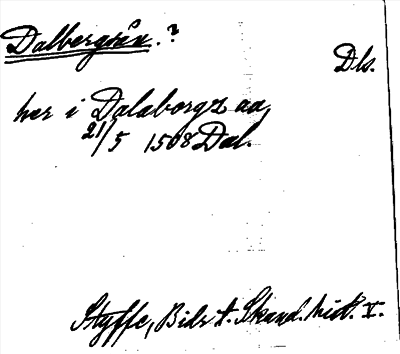 Dalbergsån.?
Dls.
her i Dalaborgz aa
21/5 1508 Dal.
Styffe, Bidr t. Skand. hist. V.